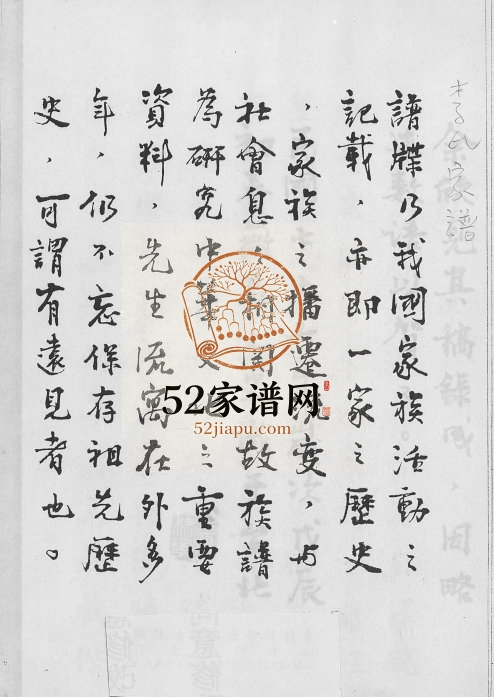 李氏家譜
譜牒乃我國家族活動之
記載，亦即一家之歷史
，家族之播遷流變，與
社會息息相關，故族譜
為研究中華文化之重要
資料，先生流寓在外多
年，仍不忘保存祖先歷
史，可謂有遠見者也。
52家谱网
52jiapu.com